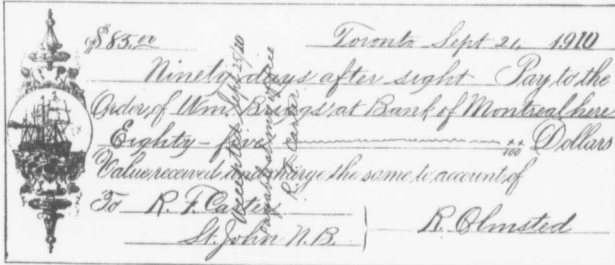 $85.00 Toronto Sept 21, 1910
Ninety days after sight Pay to the
Order of Wm. Briggs at Bank of Montreal here
Eighty-five xx/100 Dollars
Value received and charge the same to account of
To R. F. Carter
St. John N.B.
R. Olmsted
Accepted Sept 25/10
R. F. Carter